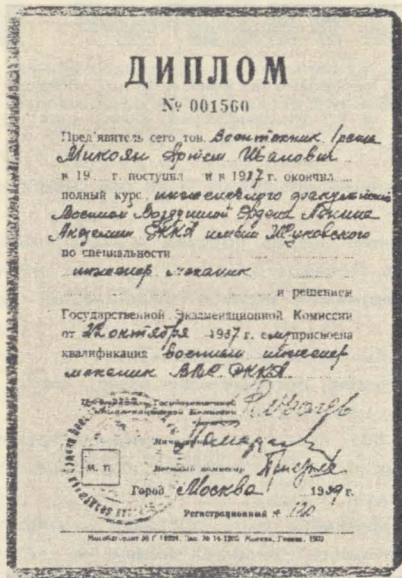 ДИПЛОМ
№ 001560
Пред'явитель сего тов. Воентехник I ранга
Микоян Артем Иванович
в 19 г. поступил и в 1937 г. окончил
полный курс инженерного факультета
Военной Воздушной Ордена Ленина
Академии РККА имени Жуковского
по специальности
инженер механик
и решением
Государственной Экзаменационной Комиссии
от 22 октября 1937 г. ему присвоена
квалификация военный инженер
механик ВВС РККА
Государственной
Экзаменационной Комиссии
М. П.
Военный комиссар
Город Москва 1939 г.
Регистрационный № 120